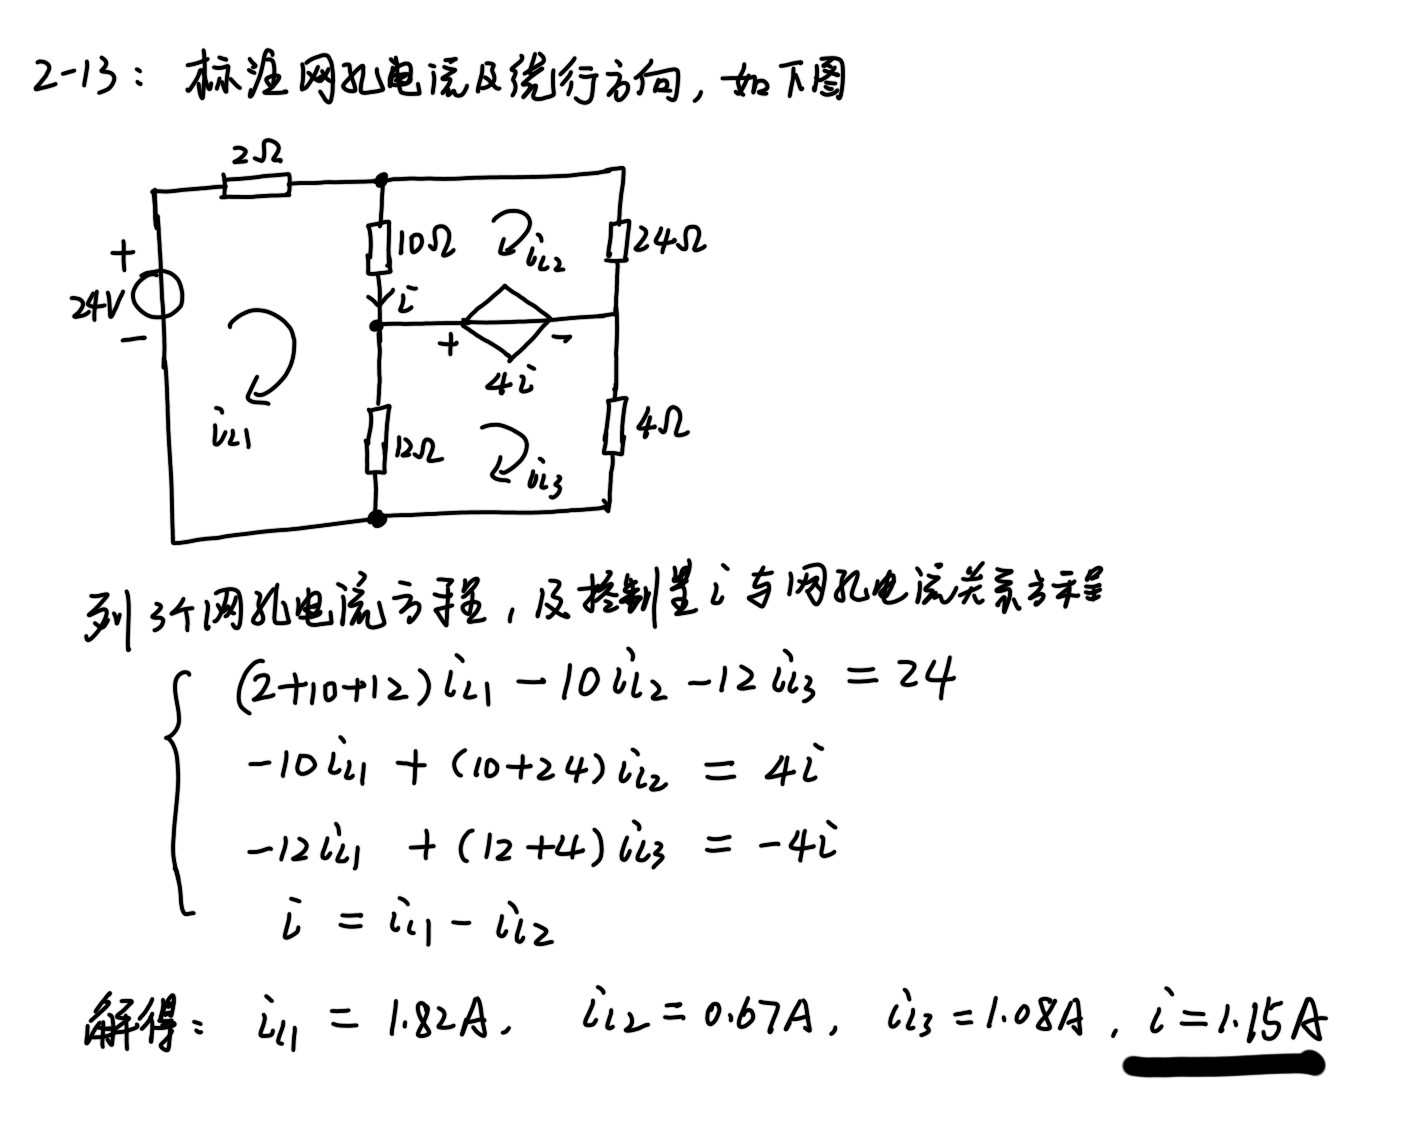 2-13: 标注网孔电流及绕行方向, 如下图
2Ω
10Ω
i
iL2
24Ω
+
24V
-
iL1
+ -
4i
12Ω
iL3
4Ω
列3个网孔电流方程, 及控制量i与网孔电流关系方程
(2+10+12)iL1 - 10iL2 - 12iL3 = 24
-10iL1 + (10+24)iL2 = 4i
-12iL1 + (12+4)iL3 = -4i
i = iL1 - iL2
解得: iL1 = 1.82A, iL2 = 0.67A, iL3 = 1.08A, i = 1.15A